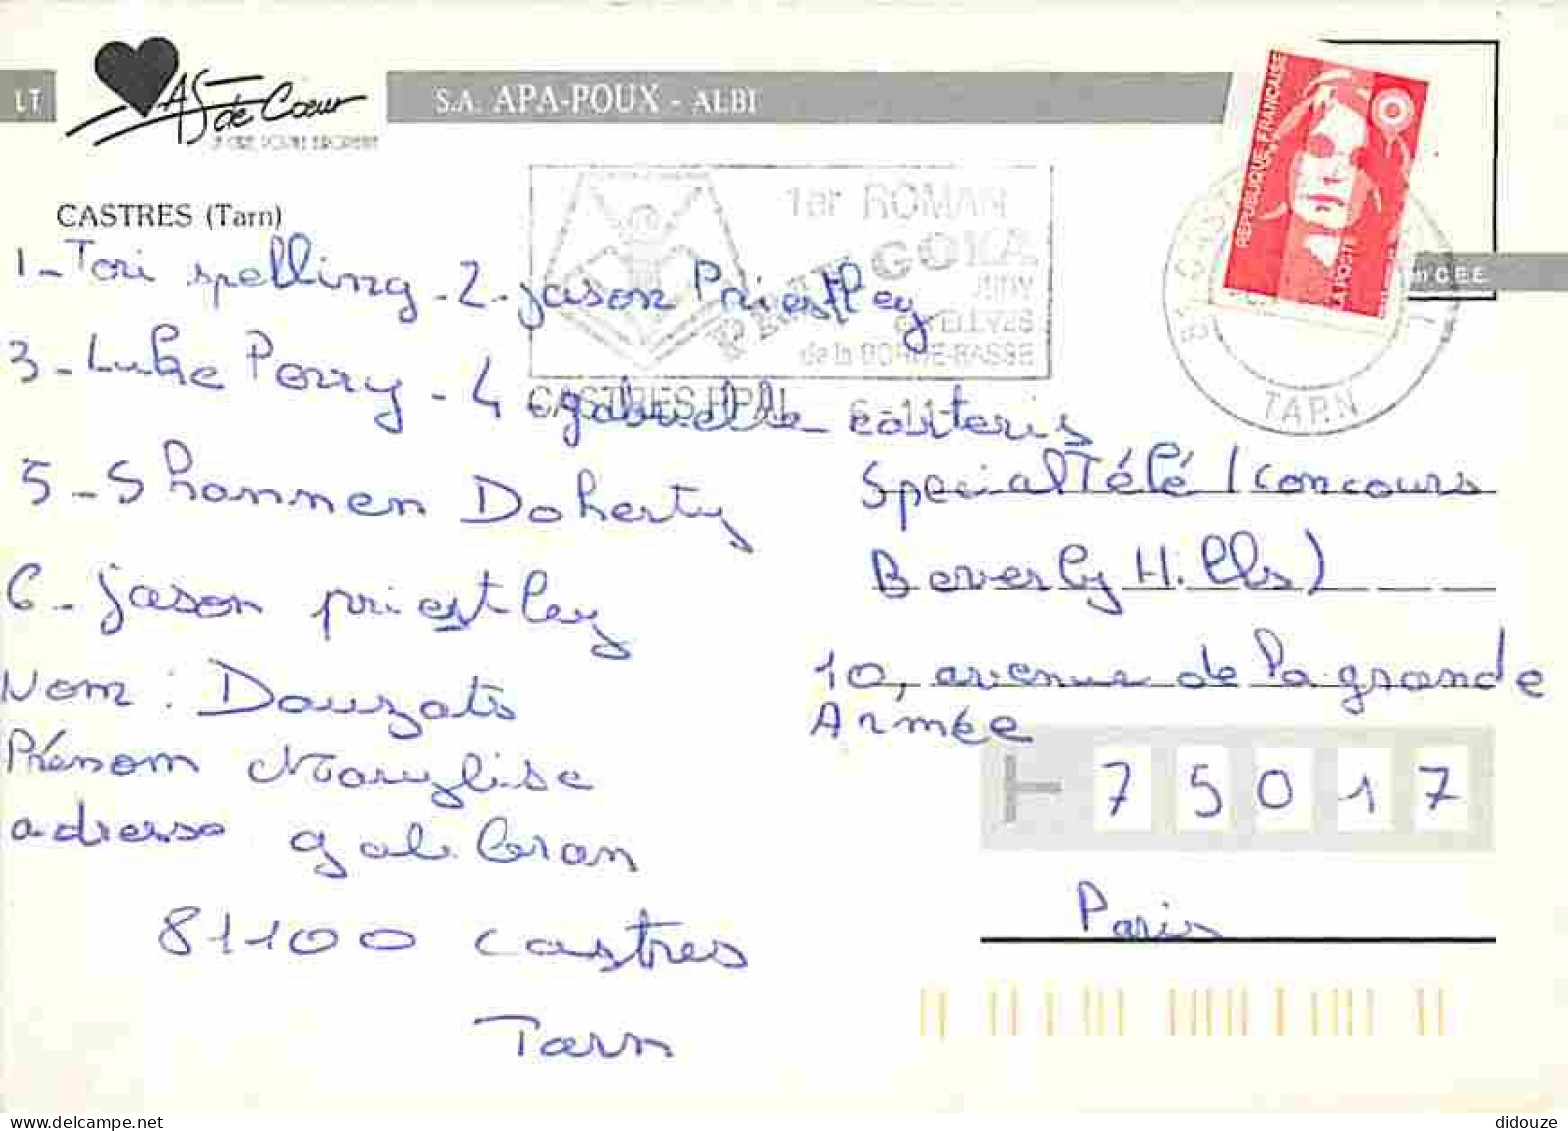 LT
As de Cœur
S.A. APA-POUX - ALBI
REPUBLIQUE FRANCAISE
LA POSTE
CASTRES (Tarn)
1er ROMAN
GOYA
JURY
de la BORDE-BASSE
CASTRES PPAL
TARN
C.E.E.
1 - Tori spelling - 2 - jason Priestley
3 - Luke Perry - 4 - gabrielle carteris
5 - Shannen Doherty
6 - jason priestley
Nom : Dauzats
Prénom Marylise
adresse
81100 Castres
Tarn
Special Télé (concours
Beverly Hills)
10, avenue de la grande
Armée
75017
Paris
didouze